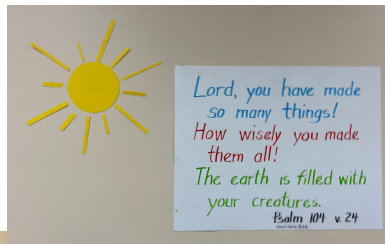 Lord, you have made
so many things!
How wisely you made
them all!
The earth is filled with
your creatures.
Psalm 104 v. 24
Good News Bible